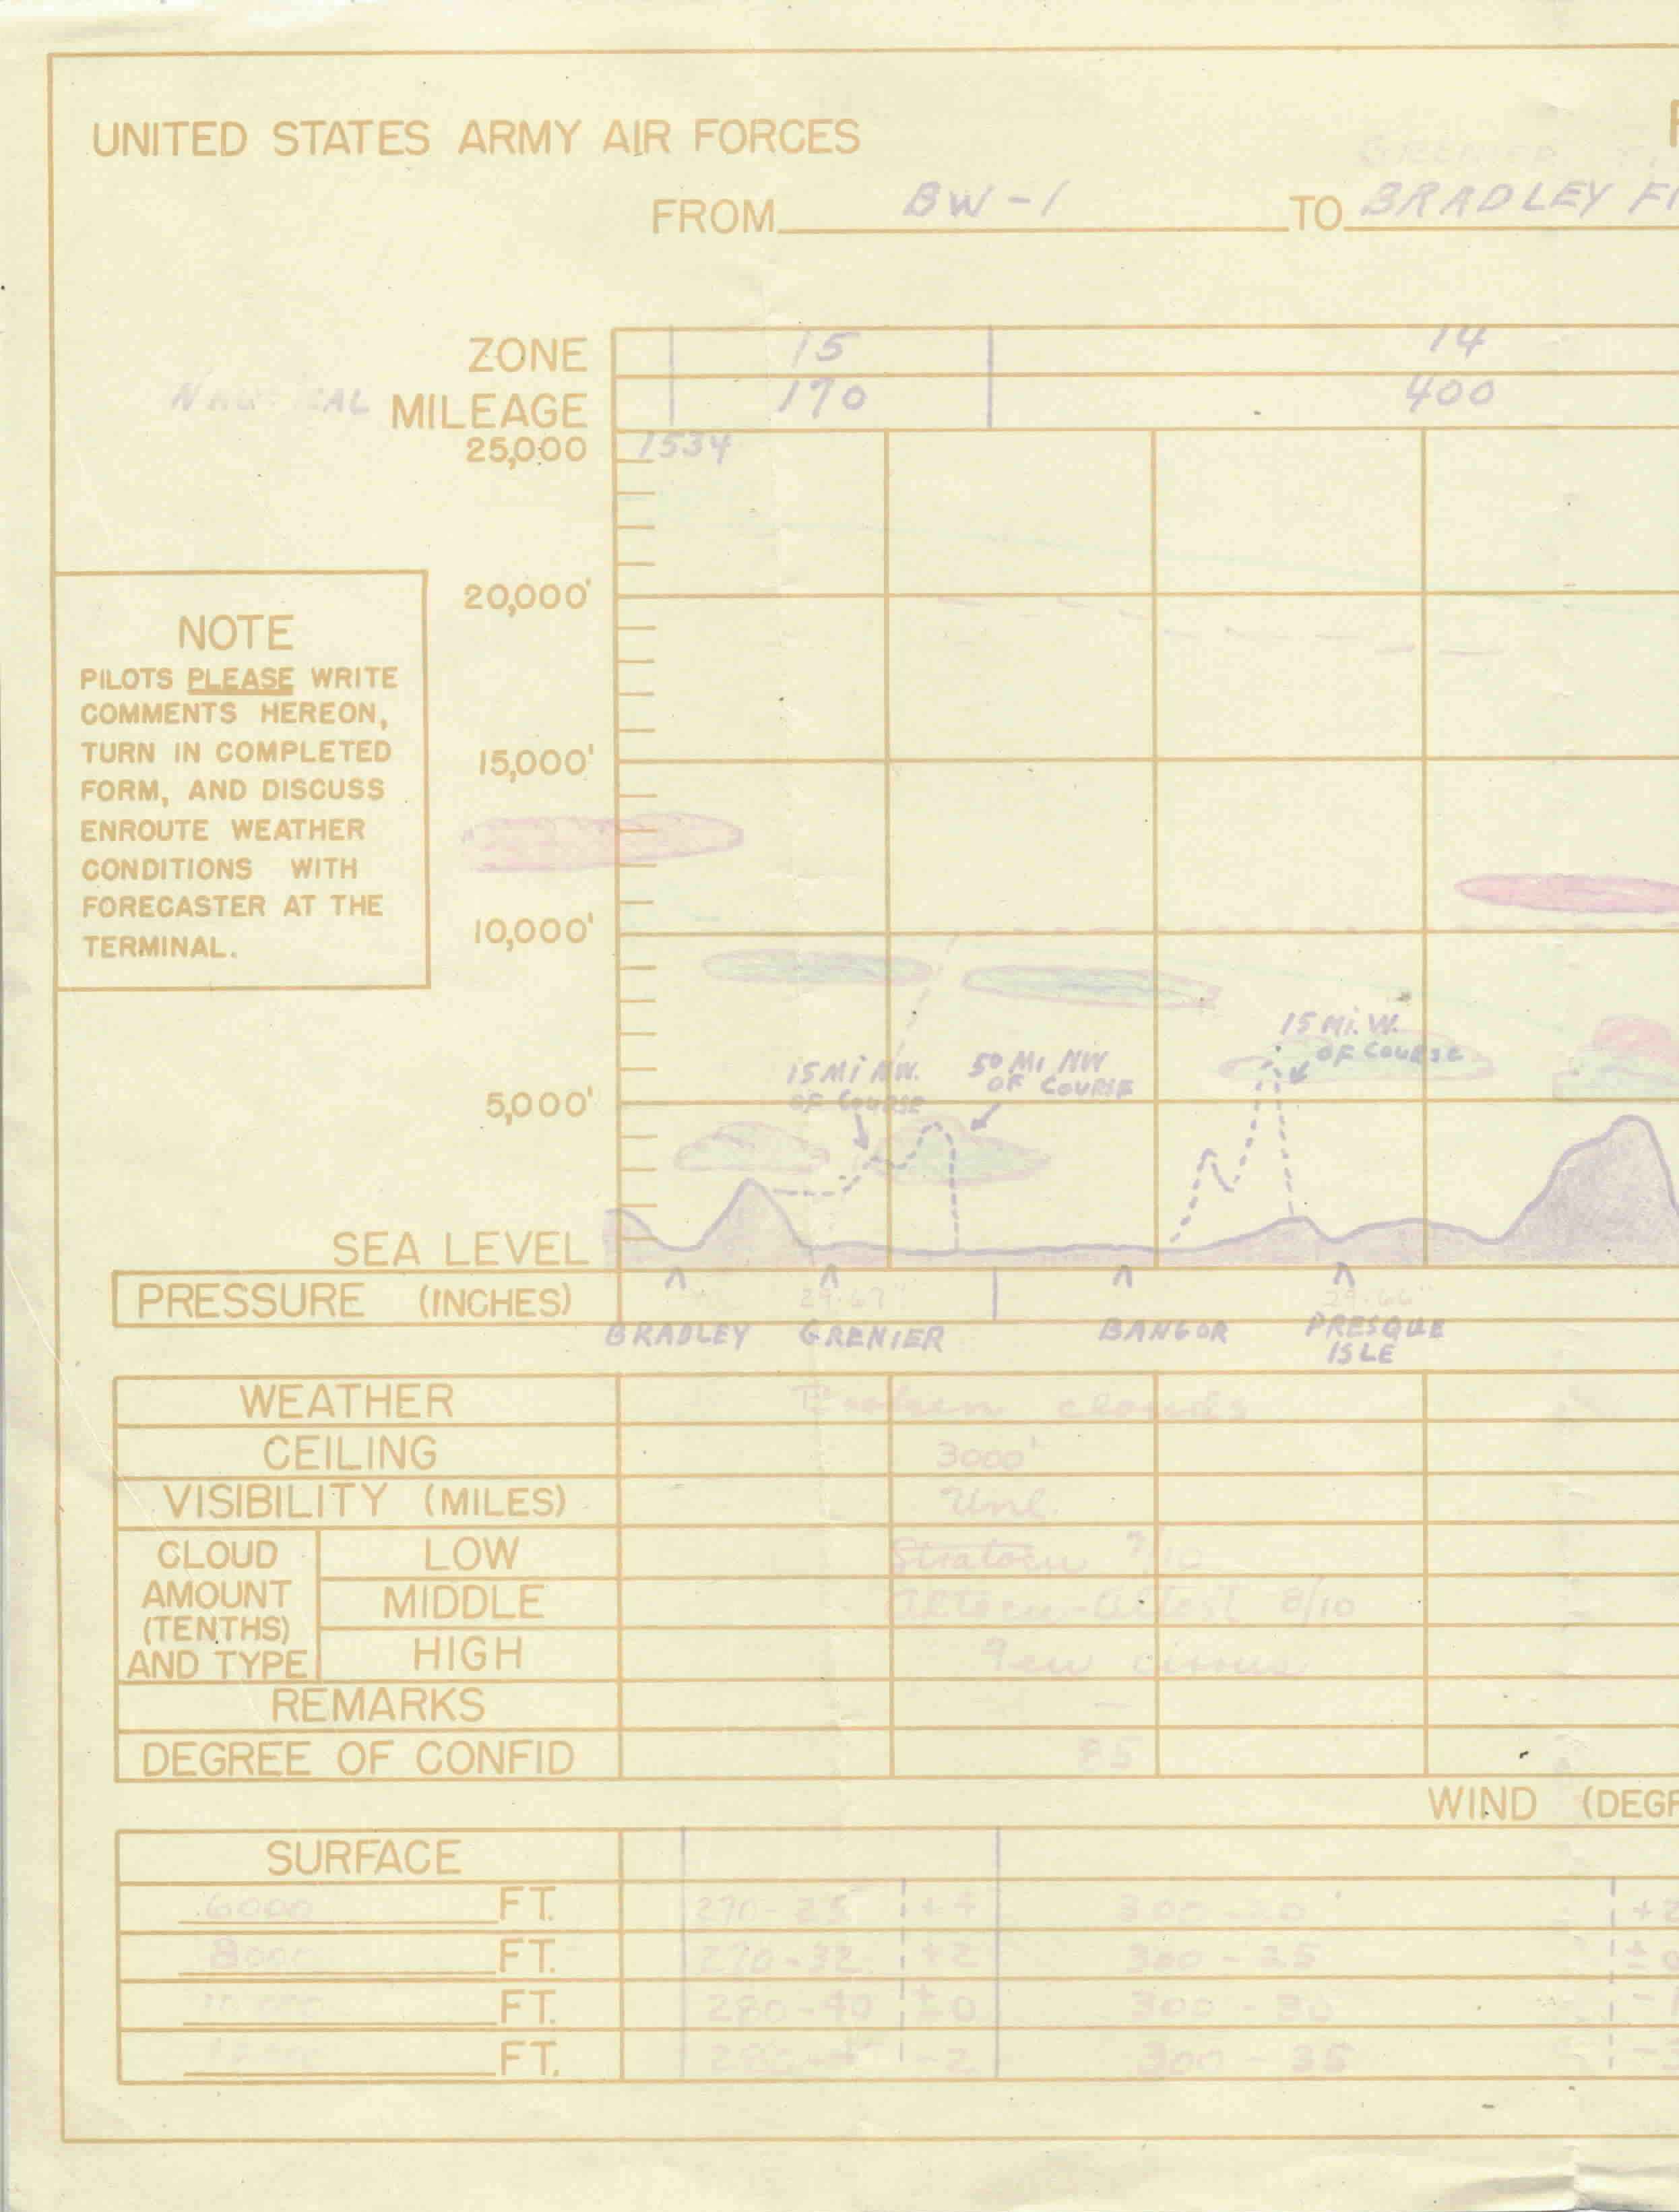 UNITED STATES ARMY AIR FORCES
FROM BW-1 TO BRADLEY
ZONE 15 14
MILEAGE 170 400
25,000 1534
20,000'
NOTE
PILOTS PLEASE WRITE
COMMENTS HEREON,
TURN IN COMPLETED
FORM, AND DISCUSS
ENROUTE WEATHER
CONDITIONS WITH
FORECASTER AT THE
TERMINAL.
15,000'
10,000'
15 MI. W.
OF COURSE
15 MI NW.
OF COURSE
50 MI NW
OF COURSE
5,000'
SEA LEVEL
PRESSURE (INCHES) 29.67" 29.66"
BRADLEY GRENIER BANGOR PRESQUE
ISLE
WEATHER Broken clouds
CEILING 3000'
VISIBILITY (MILES) Unl.
CLOUD
AMOUNT
(TENTHS)
AND TYPE
LOW Stratocu 7/10
MIDDLE Altocu-Altost 8/10
HIGH Few cirrus
REMARKS —
DEGREE OF CONFID 85
WIND
SURFACE
6000 FT. 270-25 +4 300-20
8000 FT. 270-32 +2 300-25
FT. 280-40 ±0 300-30
FT. -2 300-35